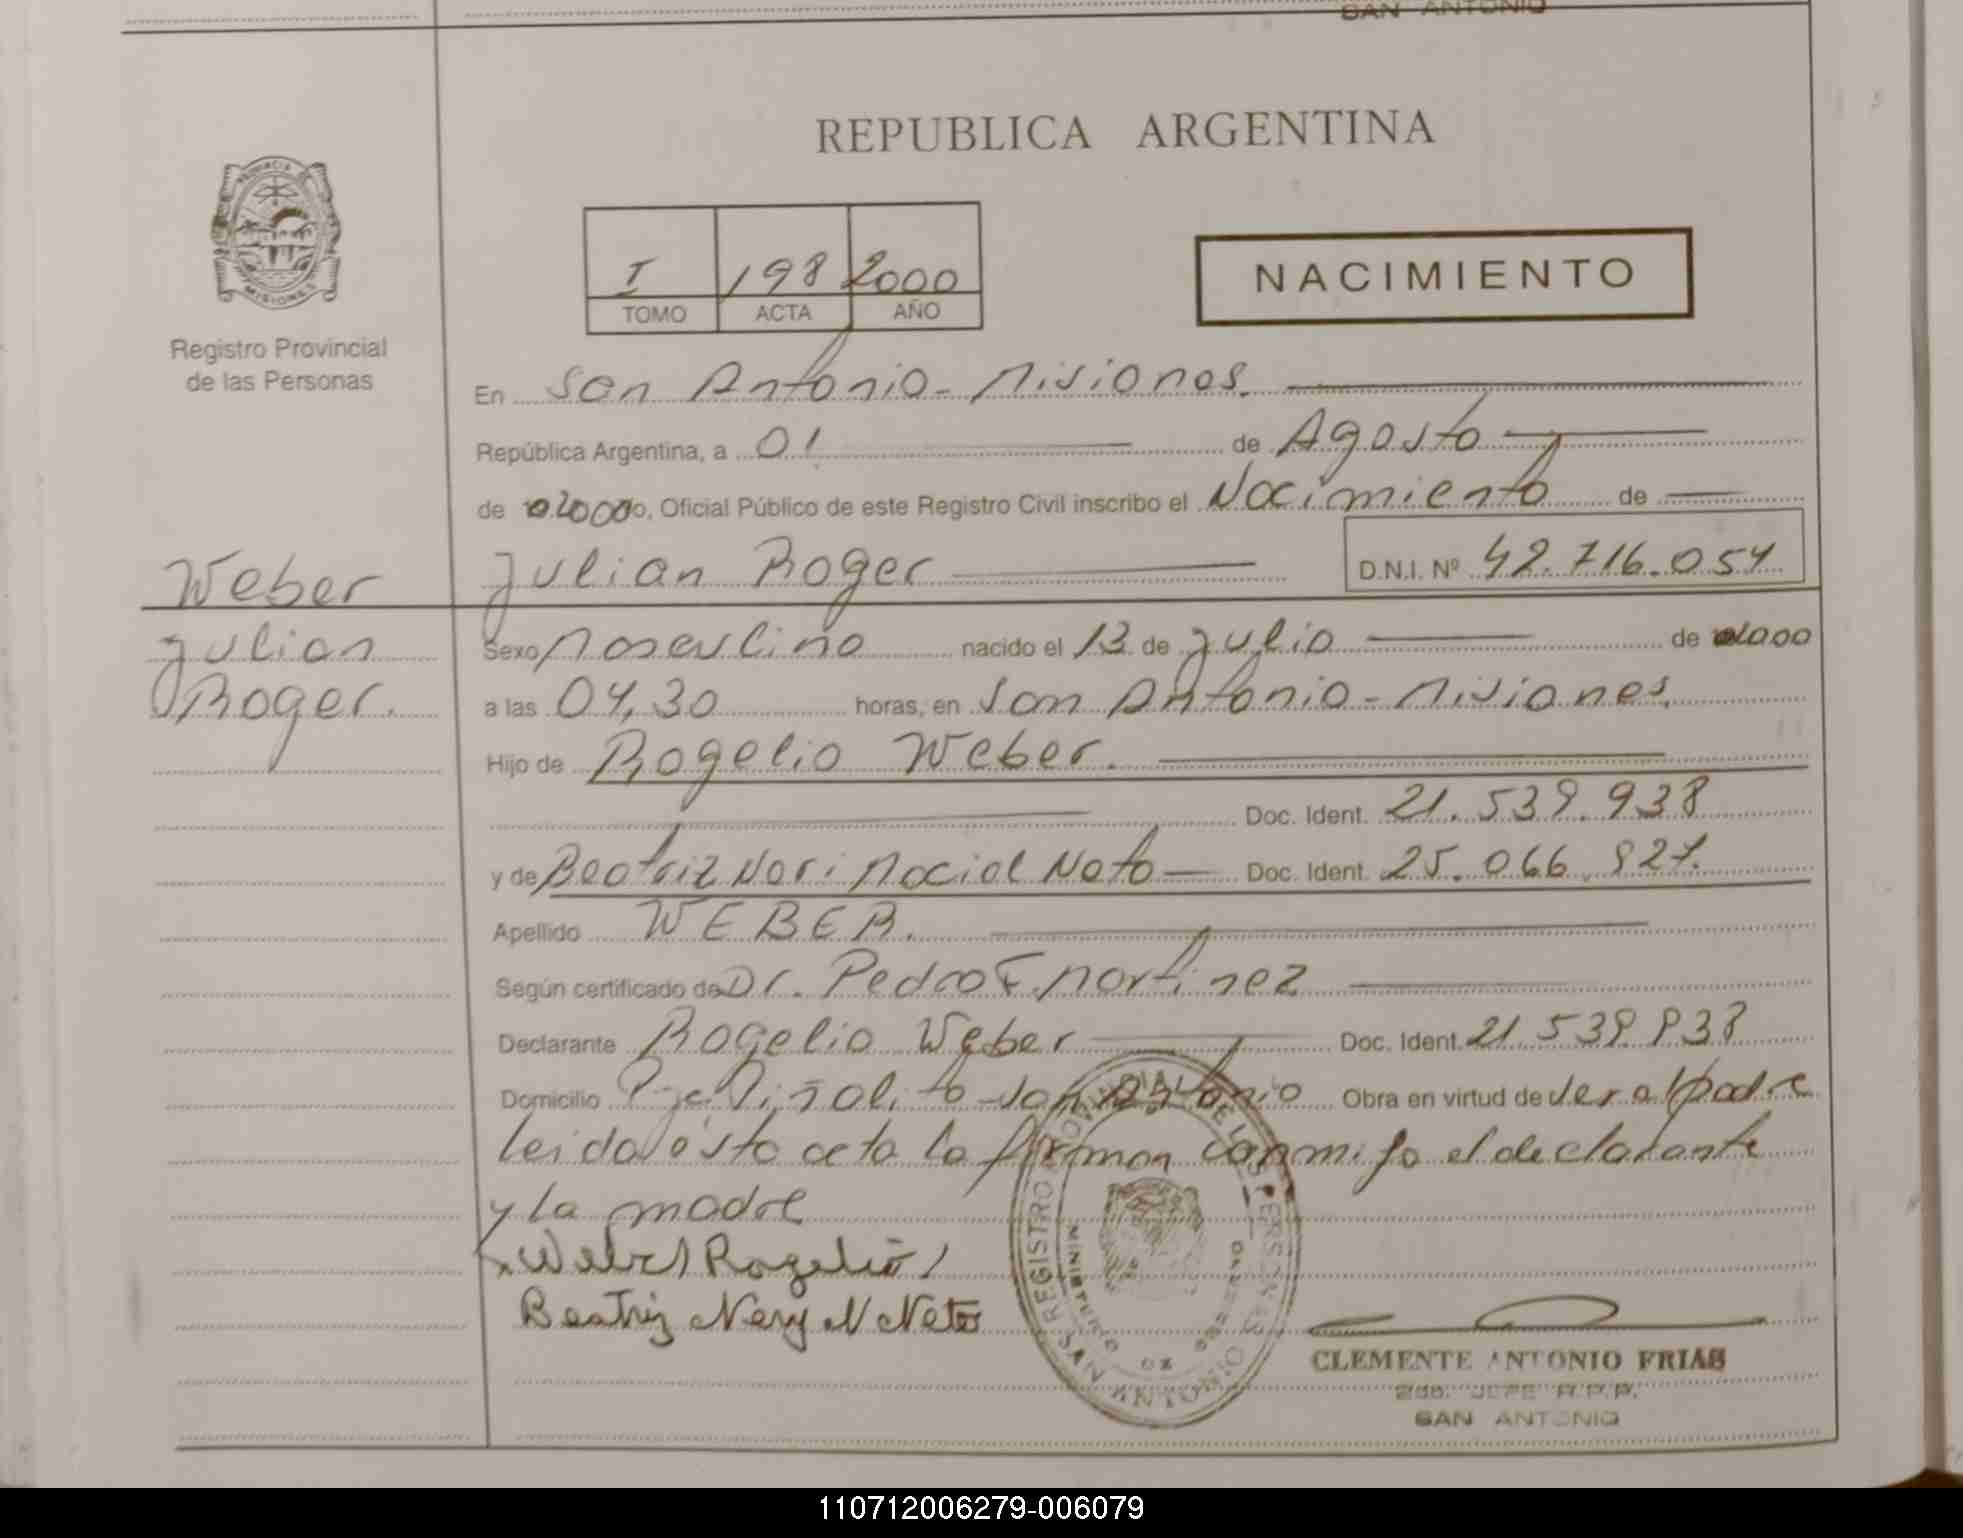 SAN ANTONIO
REPUBLICA ARGENTINA
PROVINCIA DE
MISIONES
Registro Provincial
de las Personas
I 198 2000
TOMO ACTA AÑO
NACIMIENTO
En San Antonio - Misiones.
República Argentina, a 01 de Agosto
de 2000, Oficial Público de este Registro Civil inscribo el Nacimiento de
Weber
Julian Roger D.N.I. Nº 42.716.054
Julian
Roger.
Sexo Masculino nacido el 13 de Julio de 2000
a las 04,30 horas, en San Antonio - Misiones.
Hijo de Rogelio Weber.
Doc. Ident. 21.539.938
y de Beatriz Neri Maciel Neto Doc. Ident. 25.066.827.
Apellido WEBER.
Según certificado de Dr. Pedro F. Martinez
Declarante Rogelio Weber Doc. Ident. 21.539.938
Domicilio Piñalito San Antonio Obra en virtud de ser el padre
leida ésta acta la firman conmigo el declarante
y la madre
Weber Rogelio
Beatriz Nery N Neto
REGISTRO PROVINCIAL DE LAS PERSONAS
MINISTERIO DE GOBIERNO
SAN ANTONIO
CLEMENTE ANTONIO FRIAS
2do. JEFE R.P.P.
SAN ANTONIO
110712006279-006079